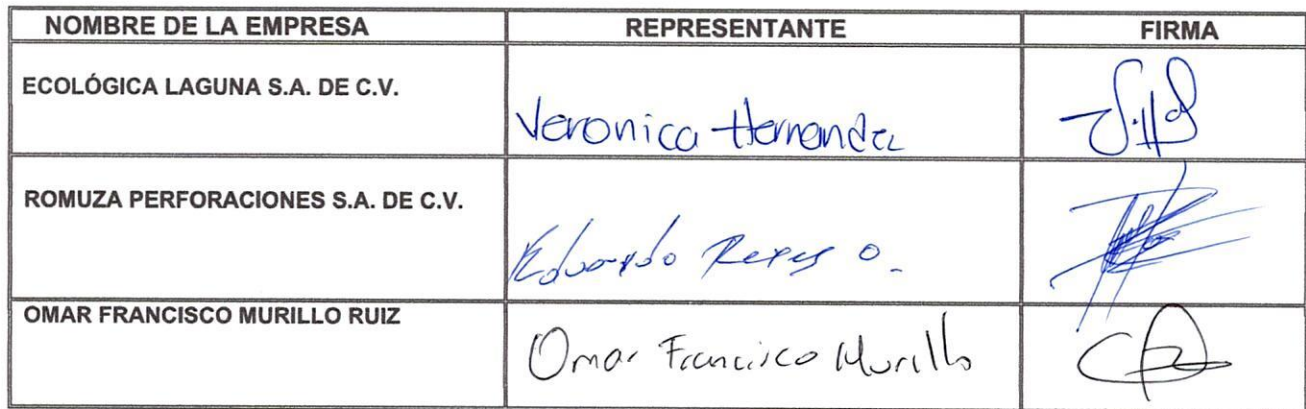 NOMBRE DE LA EMPRESA REPRESENTANTE FIRMA
ECOLÓGICA LAGUNA S.A. DE C.V.
Veronica Hernandez
ROMUZA PERFORACIONES S.A. DE C.V.
Eduardo Reyes O.
OMAR FRANCISCO MURILLO RUIZ
Omar Francisco Murillo